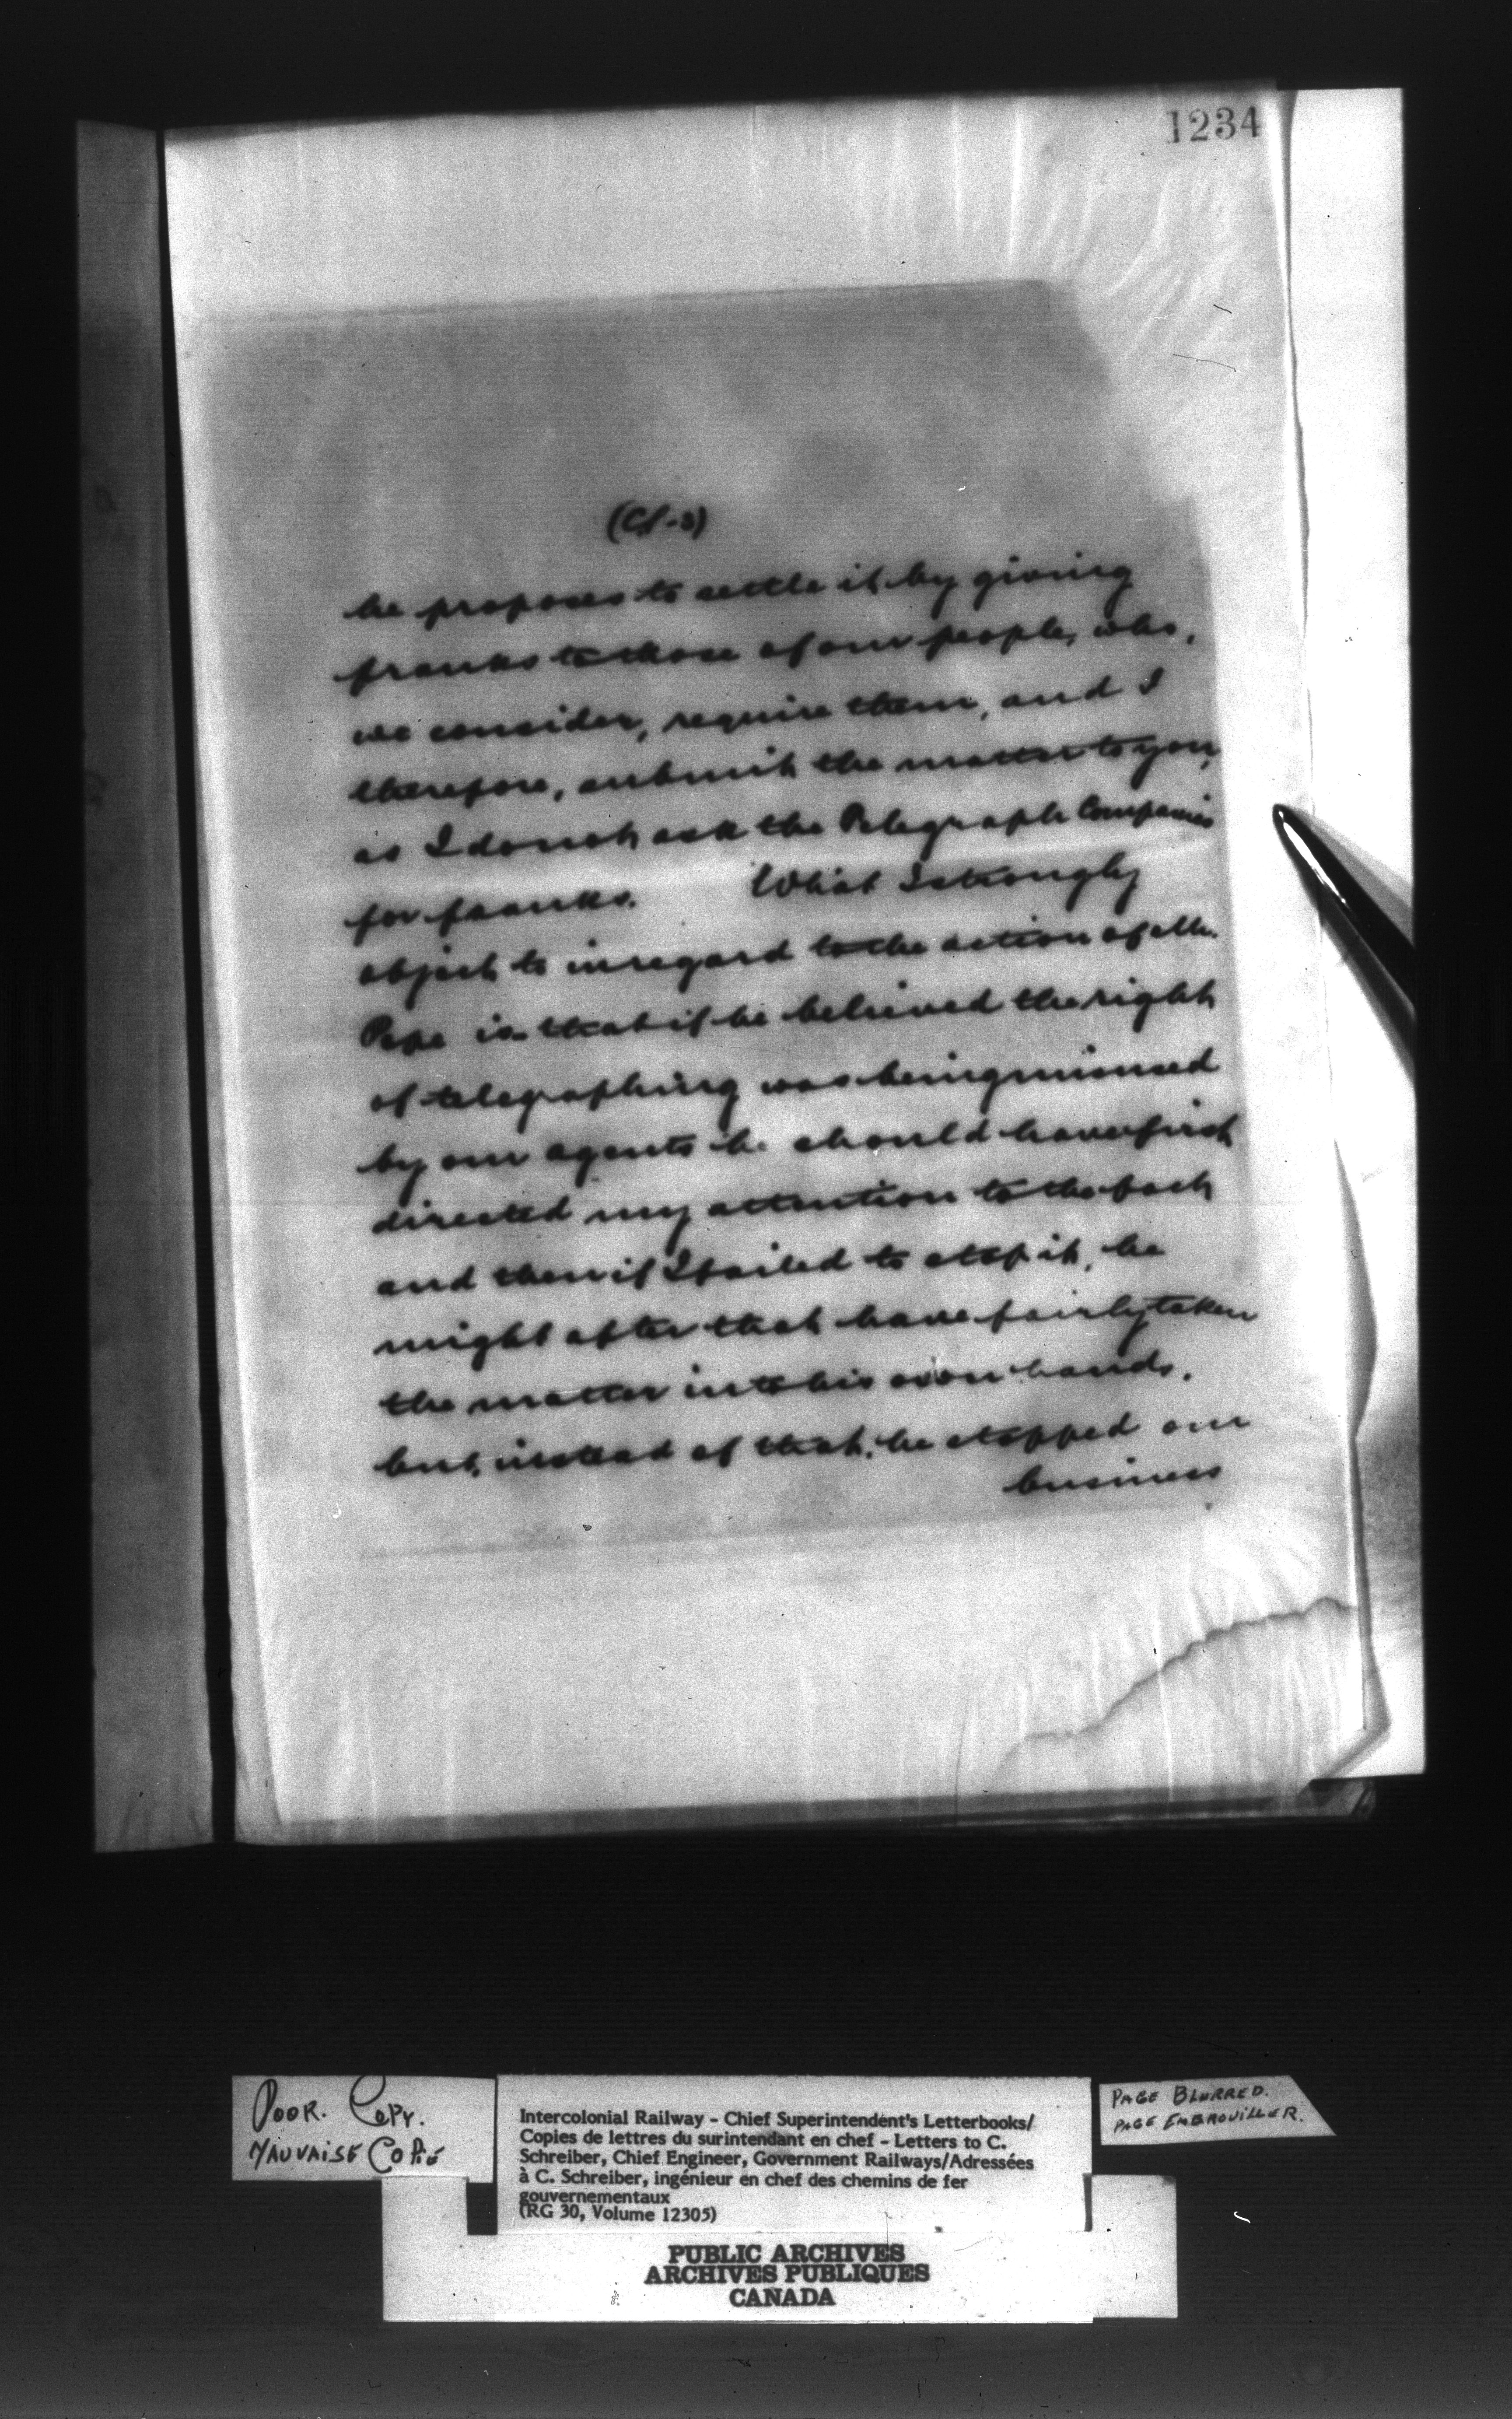 1234
(CS-3)
he proposes to settle it by giving
franks to those of our people, who,
we consider, require them, and I
therefore, submit the matter to you,
as I do not ask the Telegraph Companies
for franks. What I strongly
object to in regard to the action of Mr.
Pope is that if he believed the right
of telegraphing was being misused
by our agents he should have first
directed my attention to the fact
and then if I failed to stop it, he
might after that have fairly taken
the matter into his own hands,
but, instead of that, he stopped our
business
POOR. COPY.
MAUVAISE COPIE
Intercolonial Railway - Chief Superintendent's Letterbooks/
Copies de lettres du surintendant en chef - Letters to C.
Schreiber, Chief Engineer, Government Railways/Adressées
à C. Schreiber, ingénieur en chef des chemins de fer
gouvernementaux
(RG 30, Volume 12305)
PAGE BLURRED.
PAGE EMBROUILLER.
PUBLIC ARCHIVES
ARCHIVES PUBLIQUES
CANADA